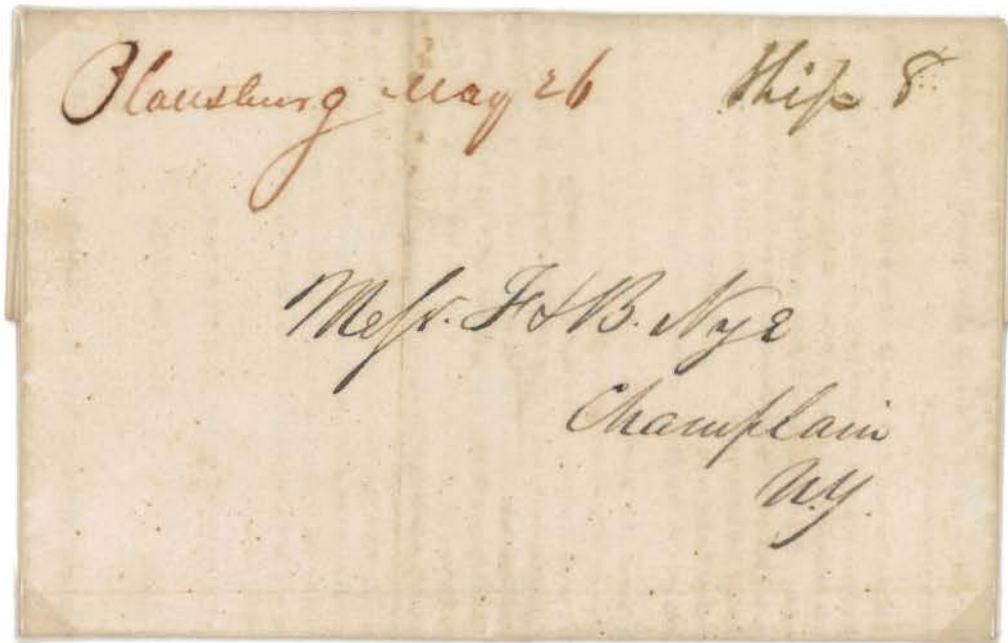 Plattsburg May 26 Ship 8
Messr. F & B. Nye
Champlain
N.Y.